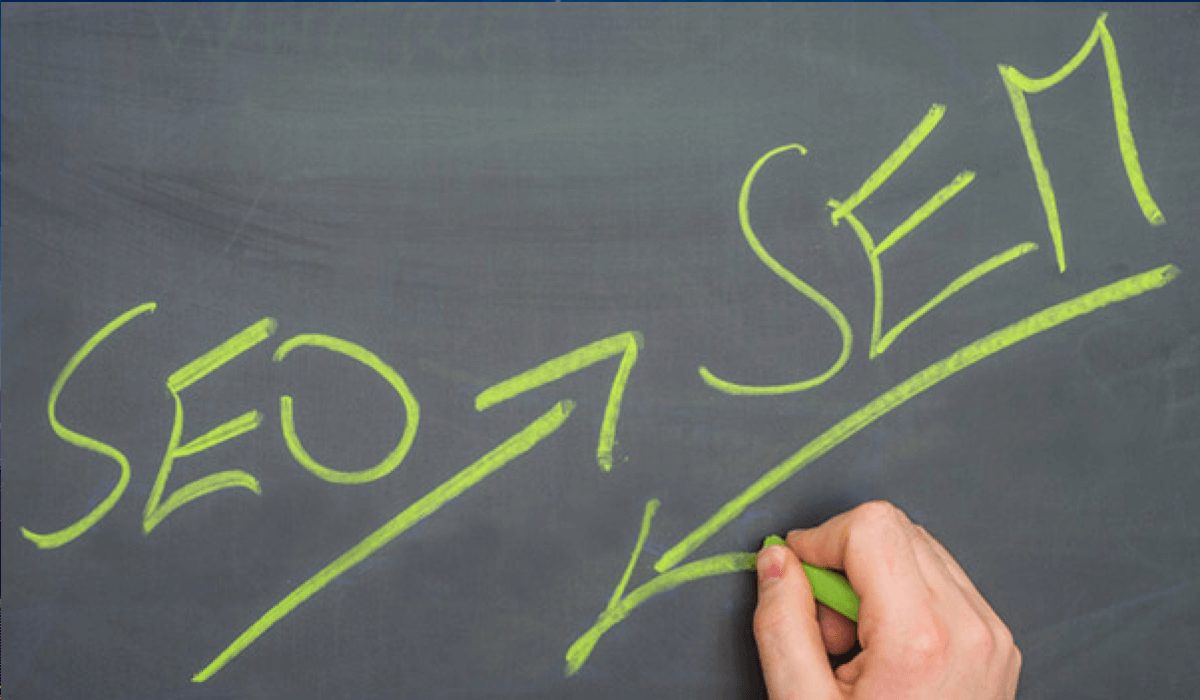 SEO
SEM